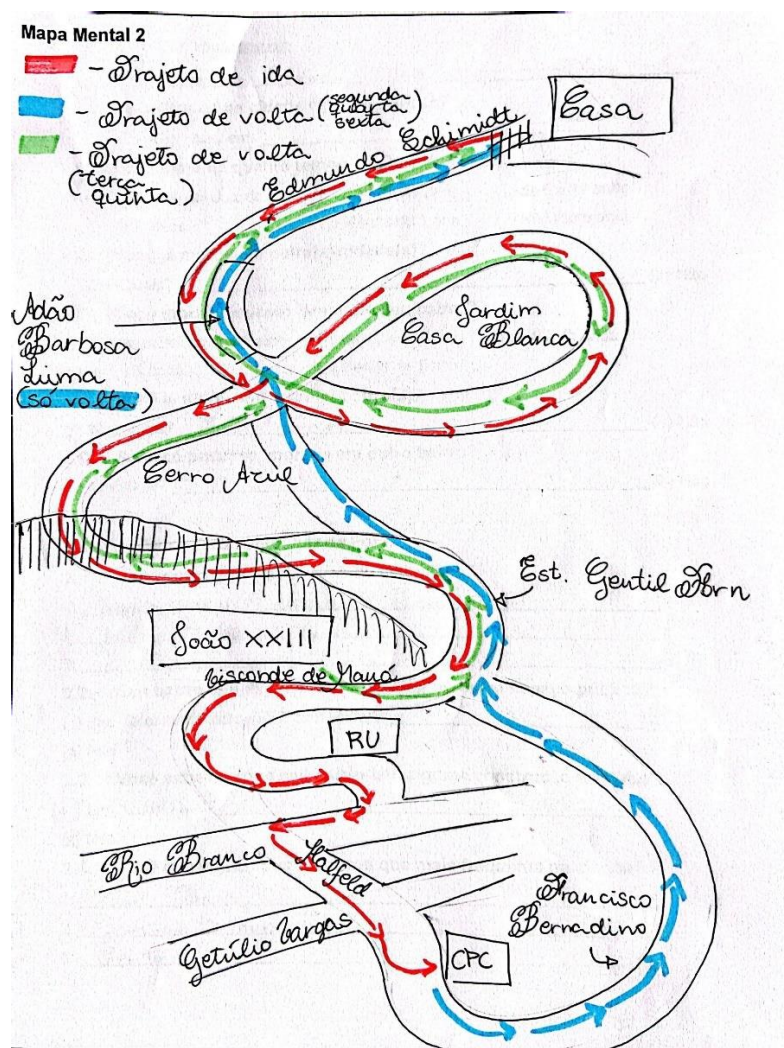 Mapa Mental 2
- Trajeto de ida
- Trajeto de volta (segunda
quarta
sexta)
- Trajeto de volta
(terça
quinta)
Casa
Edmundo Schimidt
Jardim
Casa Blanca
Adão
Barbosa
Luma
(só volta)
Cerro Azul
Est. Gentil Forn
João XXIII
Visconde de Mauá
RU
Rio Branco
Halfeld
Getúlio Vargas
CPC
Francisco
Bernadino